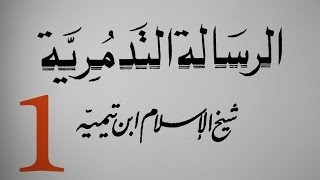 الرسالة التَدمُرِيَّة
شيخ الإسلام ابن تيميّه
1